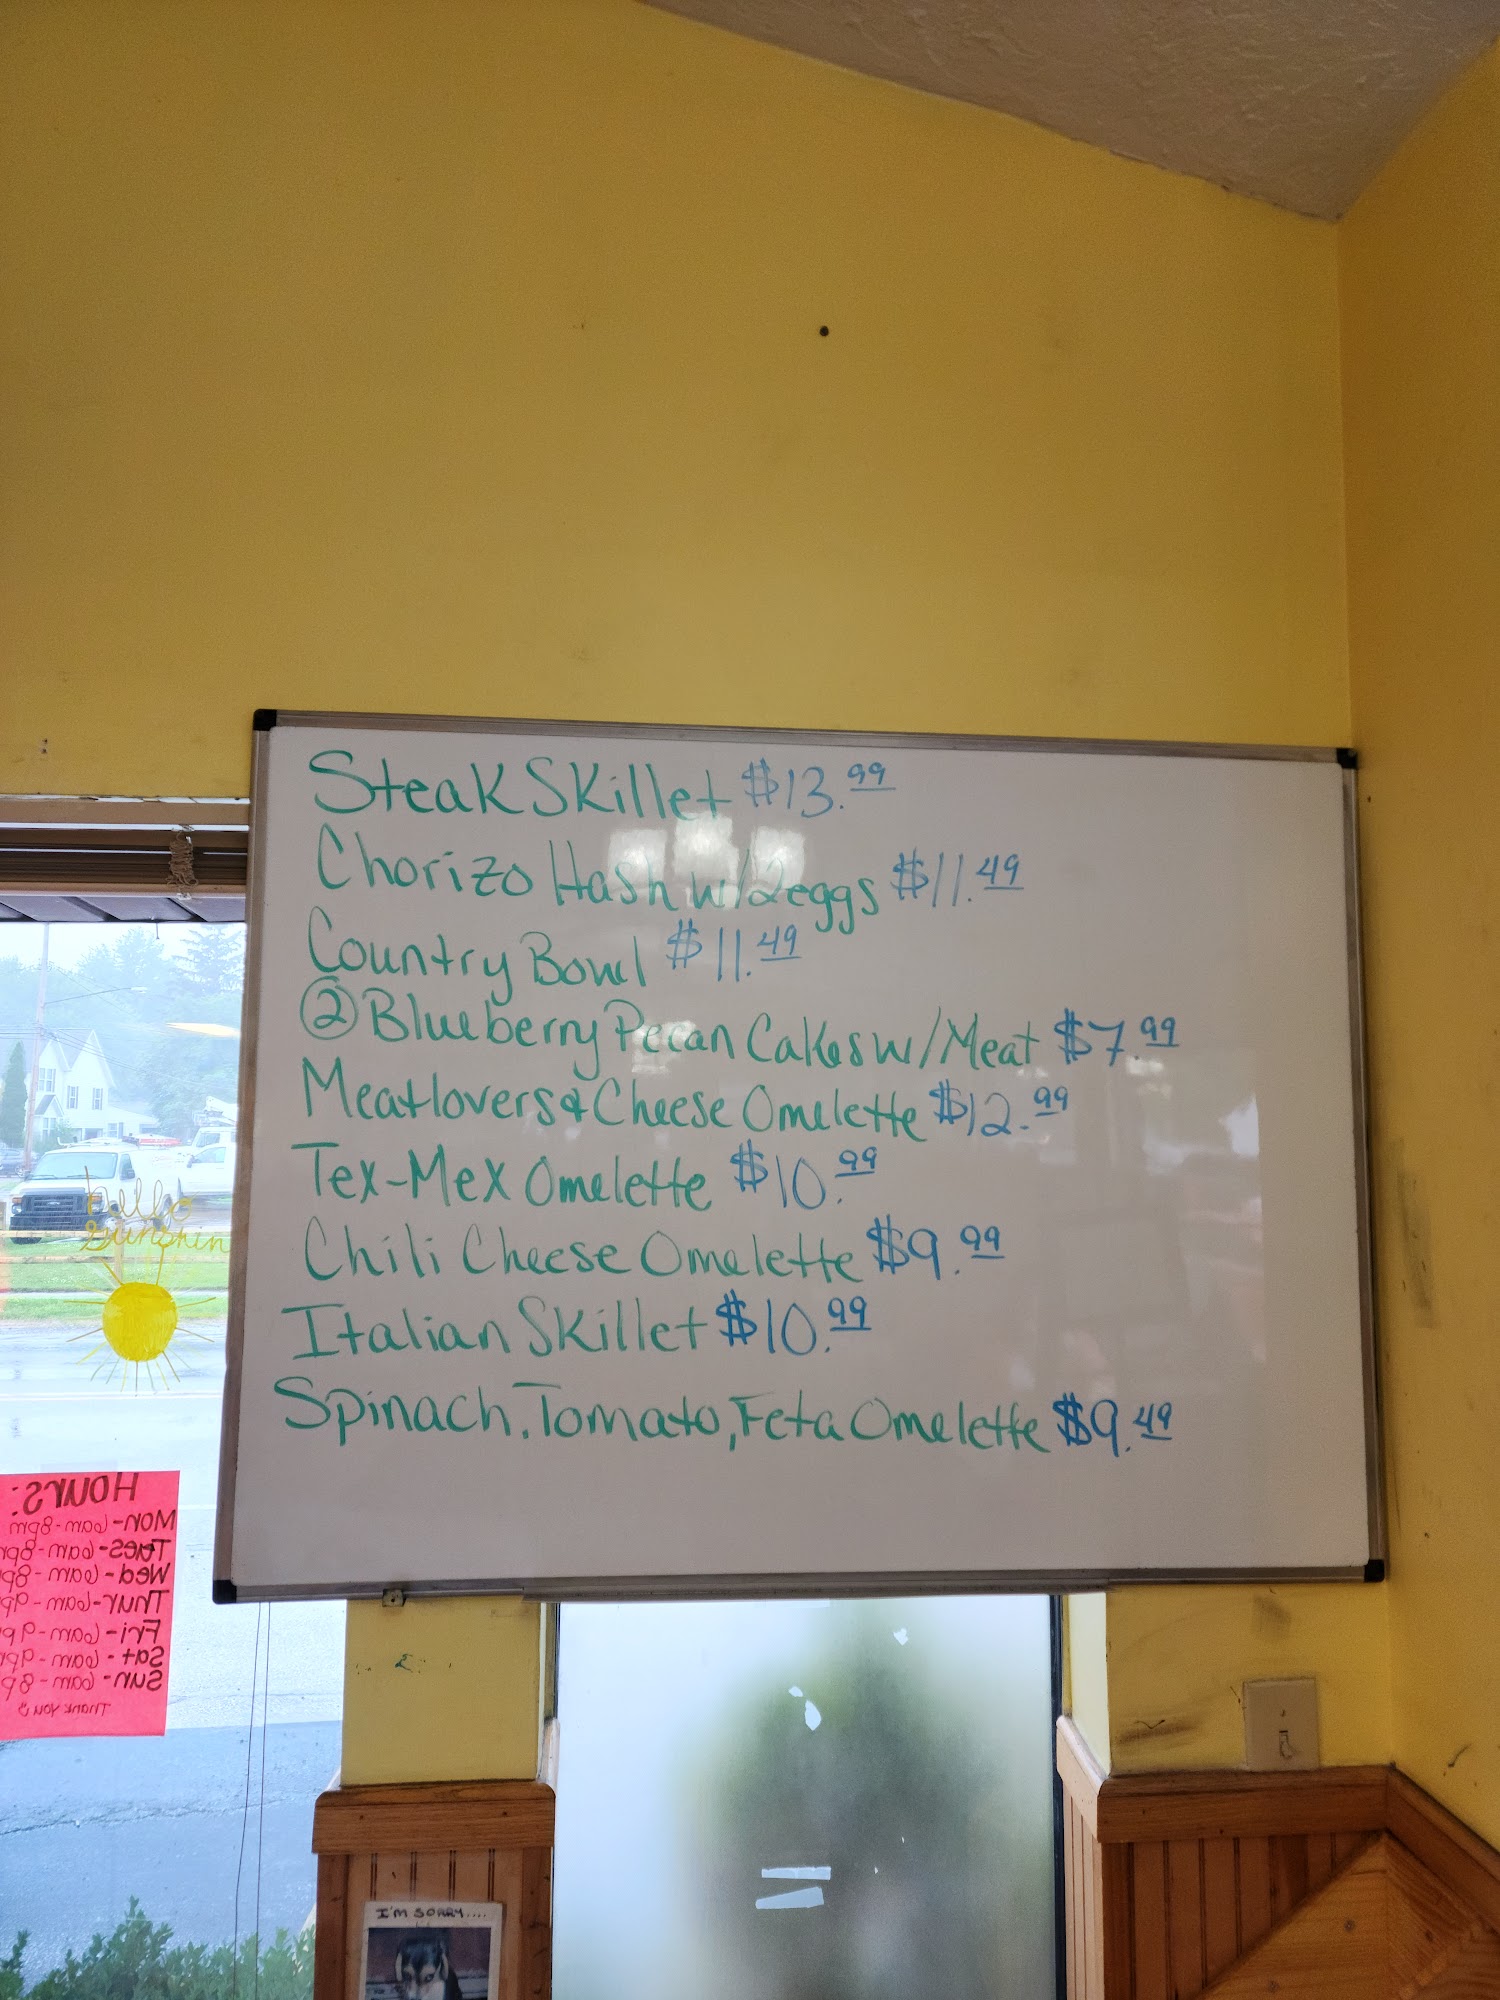 Steak Skillet $13.99
Chorizo Hash w/2eggs $11.49
Country Bowl $11.49
② Blueberry Pecan Cakes w/Meat $7.99
Meatlovers & Cheese Omelette $12.99
Tex-Mex Omelette $10.99
Chili Cheese Omelette $9.99
Italian Skillet $10.99
Spinach, Tomato, Feta Omelette $9.49
hello
sunshin
Hours:
Mon-6am-8pm
Tues-6am-8pm
Wed-6am-8p
Thur-6am-9p
Fri-6am-9p
Sat-6am-9pm
Sun-6am-8p
Thank you
I'M SORRY....